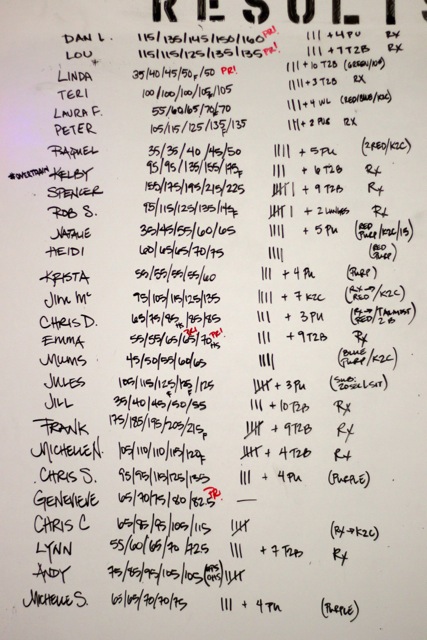 RESULTS
DAN L. 115/135/145/150/160 PR! III + 4 PU RX
LOU 115/115/125/135/135 PR! III + 7 T2B RX
LINDA 35/40/45/50F/50 PR! III + 10 T2B
TERI 100/100/100/105F/105 III + 3 T2B RX
LAURA F. 55/60/65/70F/70 III + 4 (RED/BLUE/K2C)
PETER 105/115/125/135F/135 III + 2 PU RX
RAQUEL 35/35/40/45/50 IIII + 5 PU (2RED/K2C)
KELBY 95/95/135/155/175F IIII + 6 T2B Rx
SPENCER 155/175/195/215/225 IIII I + 9 T2B Rx
ROB S. 95/115/125/135/145F IIII I + 2 LUNGES Rx
NATALIE 35/45/55/60/65 IIII + 5 PU (RED PURP/K2C/15)
HEIDI 60/65/65/70/75 IIII (RED PURP)
KRISTA 55/55/55/55/60 III + 4 PU (PURP)
JIM Mc 95/105/115/125/135 III + 7 K2C (RX→RED/K2C)
CHRIS D. 65/75/85/85/85 III + 3 PU
EMMA 55/55/65/65/70 PR! PR! III + 9 T2B Rx
MUMS 45/50/55/60/65 IIII (BLUE PURP/K2C)
JULES 105/115/125F/125F/125 IIII + 3 PU
JILL 35/40/45/50/55 III + 10 T2B Rx
FRANK 175/185/195/205/215F IIII + 9 T2B Rx
MICHELLE N. 105/110/110/115/120F IIII + 4 T2B Rx
CHRIS S. 95/95/115/125/135 III + 4 PU (PURPLE)
GENEVIEVE 65/70/75/80/82.5 PR! —
CHRIS C 65/85/95/105/115 IIII (RX→K2C)
LYNN 55/60/65/70/72.5 III + 7 T2B Rx
ANDY 75/85/95/105/105 IIII
MICHELLE S. 65/65/70/70/75 III + 4 PU (PURPLE)